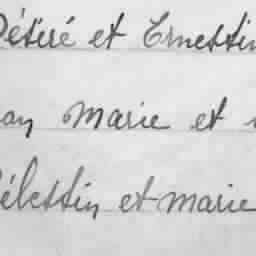 Désiré et Ernestin
an Marie et
élestin et marie